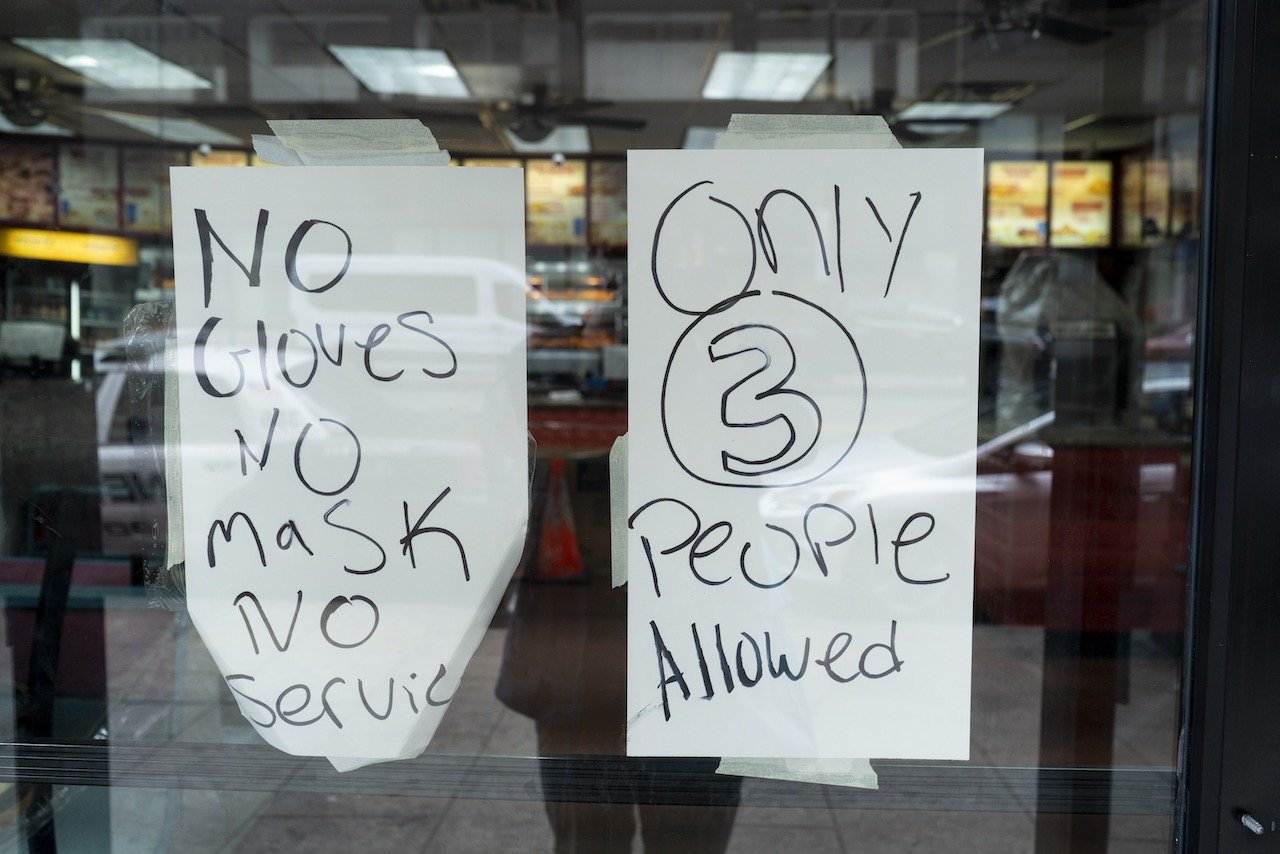 NO
Gloves
NO
mask
NO
servic
Only
3
People
Allowed